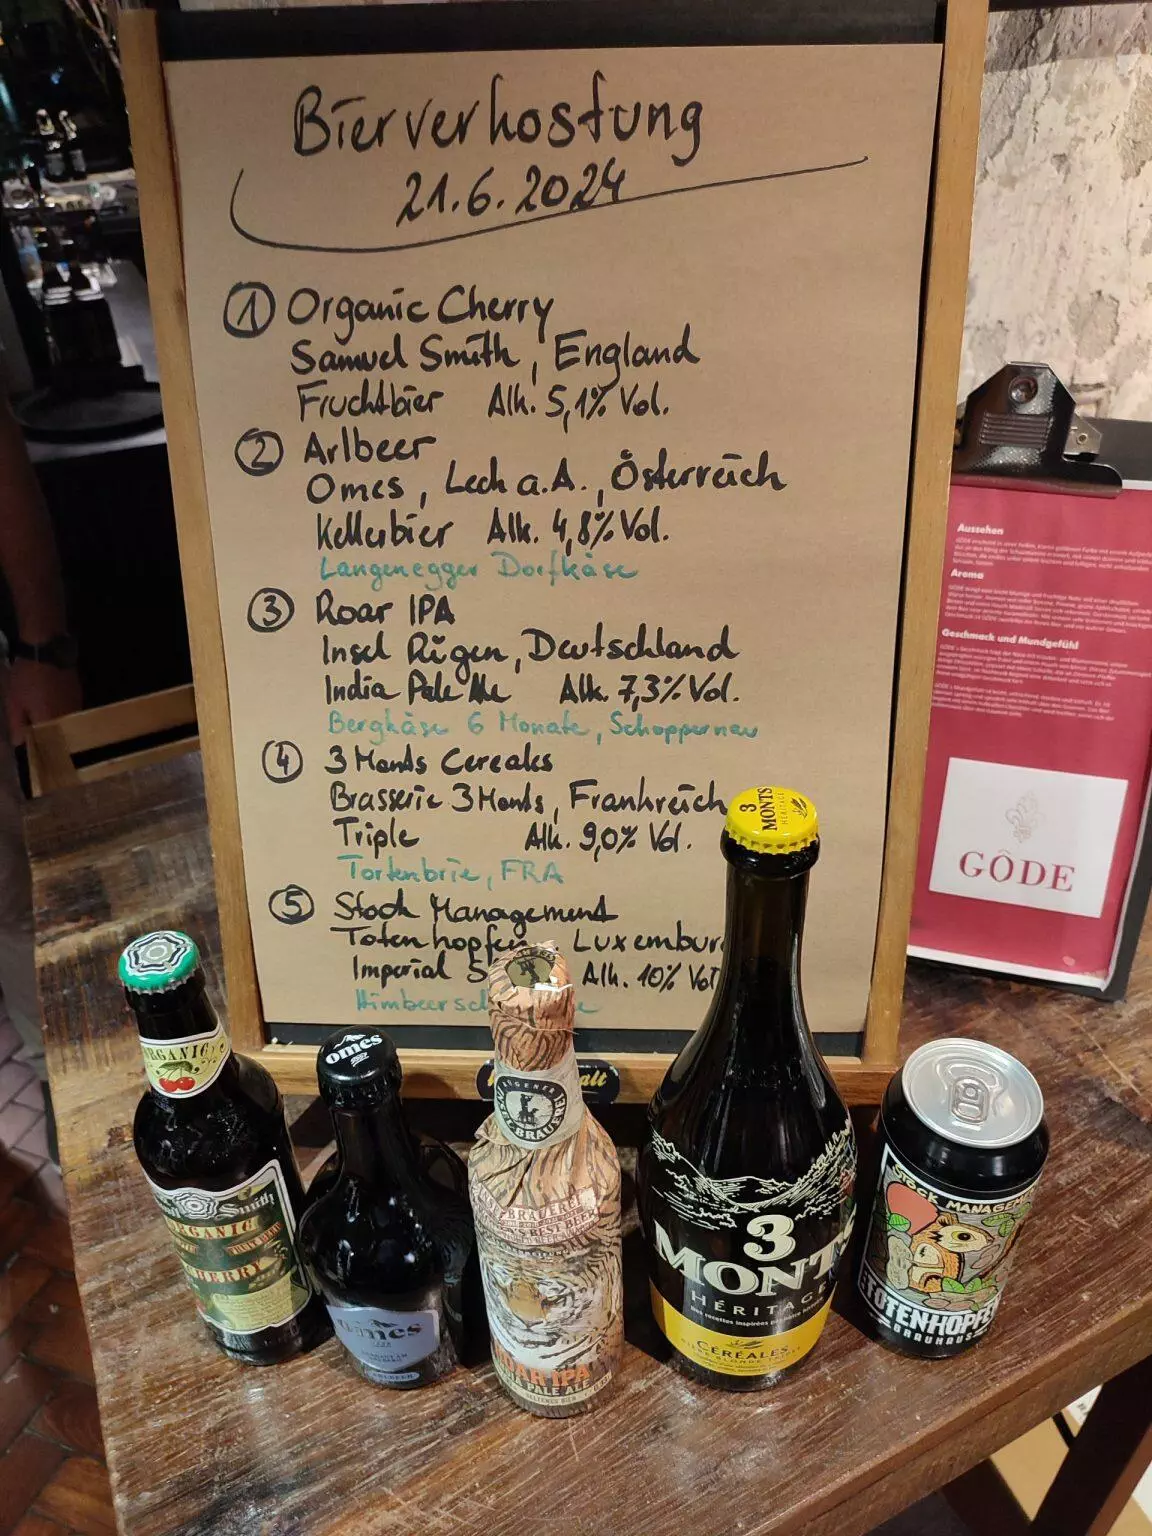 Bierverkostung
21.6.2024
1 Organic Cherry
Samuel Smith, England
Fruchtbier Alk. 5,1% Vol.
2 Arlbeer
Omes, Lech a.A., Österreich
Kellerbier Alk. 4,8% Vol.
Langenegger Dorfkäse
3 Roar IPA
Insel Rügen, Deutschland
India Pale Ale Alk. 7,3% Vol.
Bergkäse 6 Monate, Schoppernau
4 3 Monts Cereales
Brasserie 3 Monts, Frankreich
Triple Alk. 9,0% Vol.
Tortenbrie, FRA
5 Stock Management
Totenhopfen Luxembur
Imperial S Alk. 10% Vol
Himbeersc
Aussehen
Aroma
Geschmack und Mundgefühl
GÔDE
3
MONTS
HÉRITAGE
ORGANIC
Smith
ORGANIC
CHERRY
omes
omes
RÜGENER
BRAUEREI
ROAR IPA
INDIA PALE ALE
3
MONTS
HÉRITAGE
CÉRÉALES
STOCK MANAGEMENT
TOTENHOPFE
BRAUHAUS